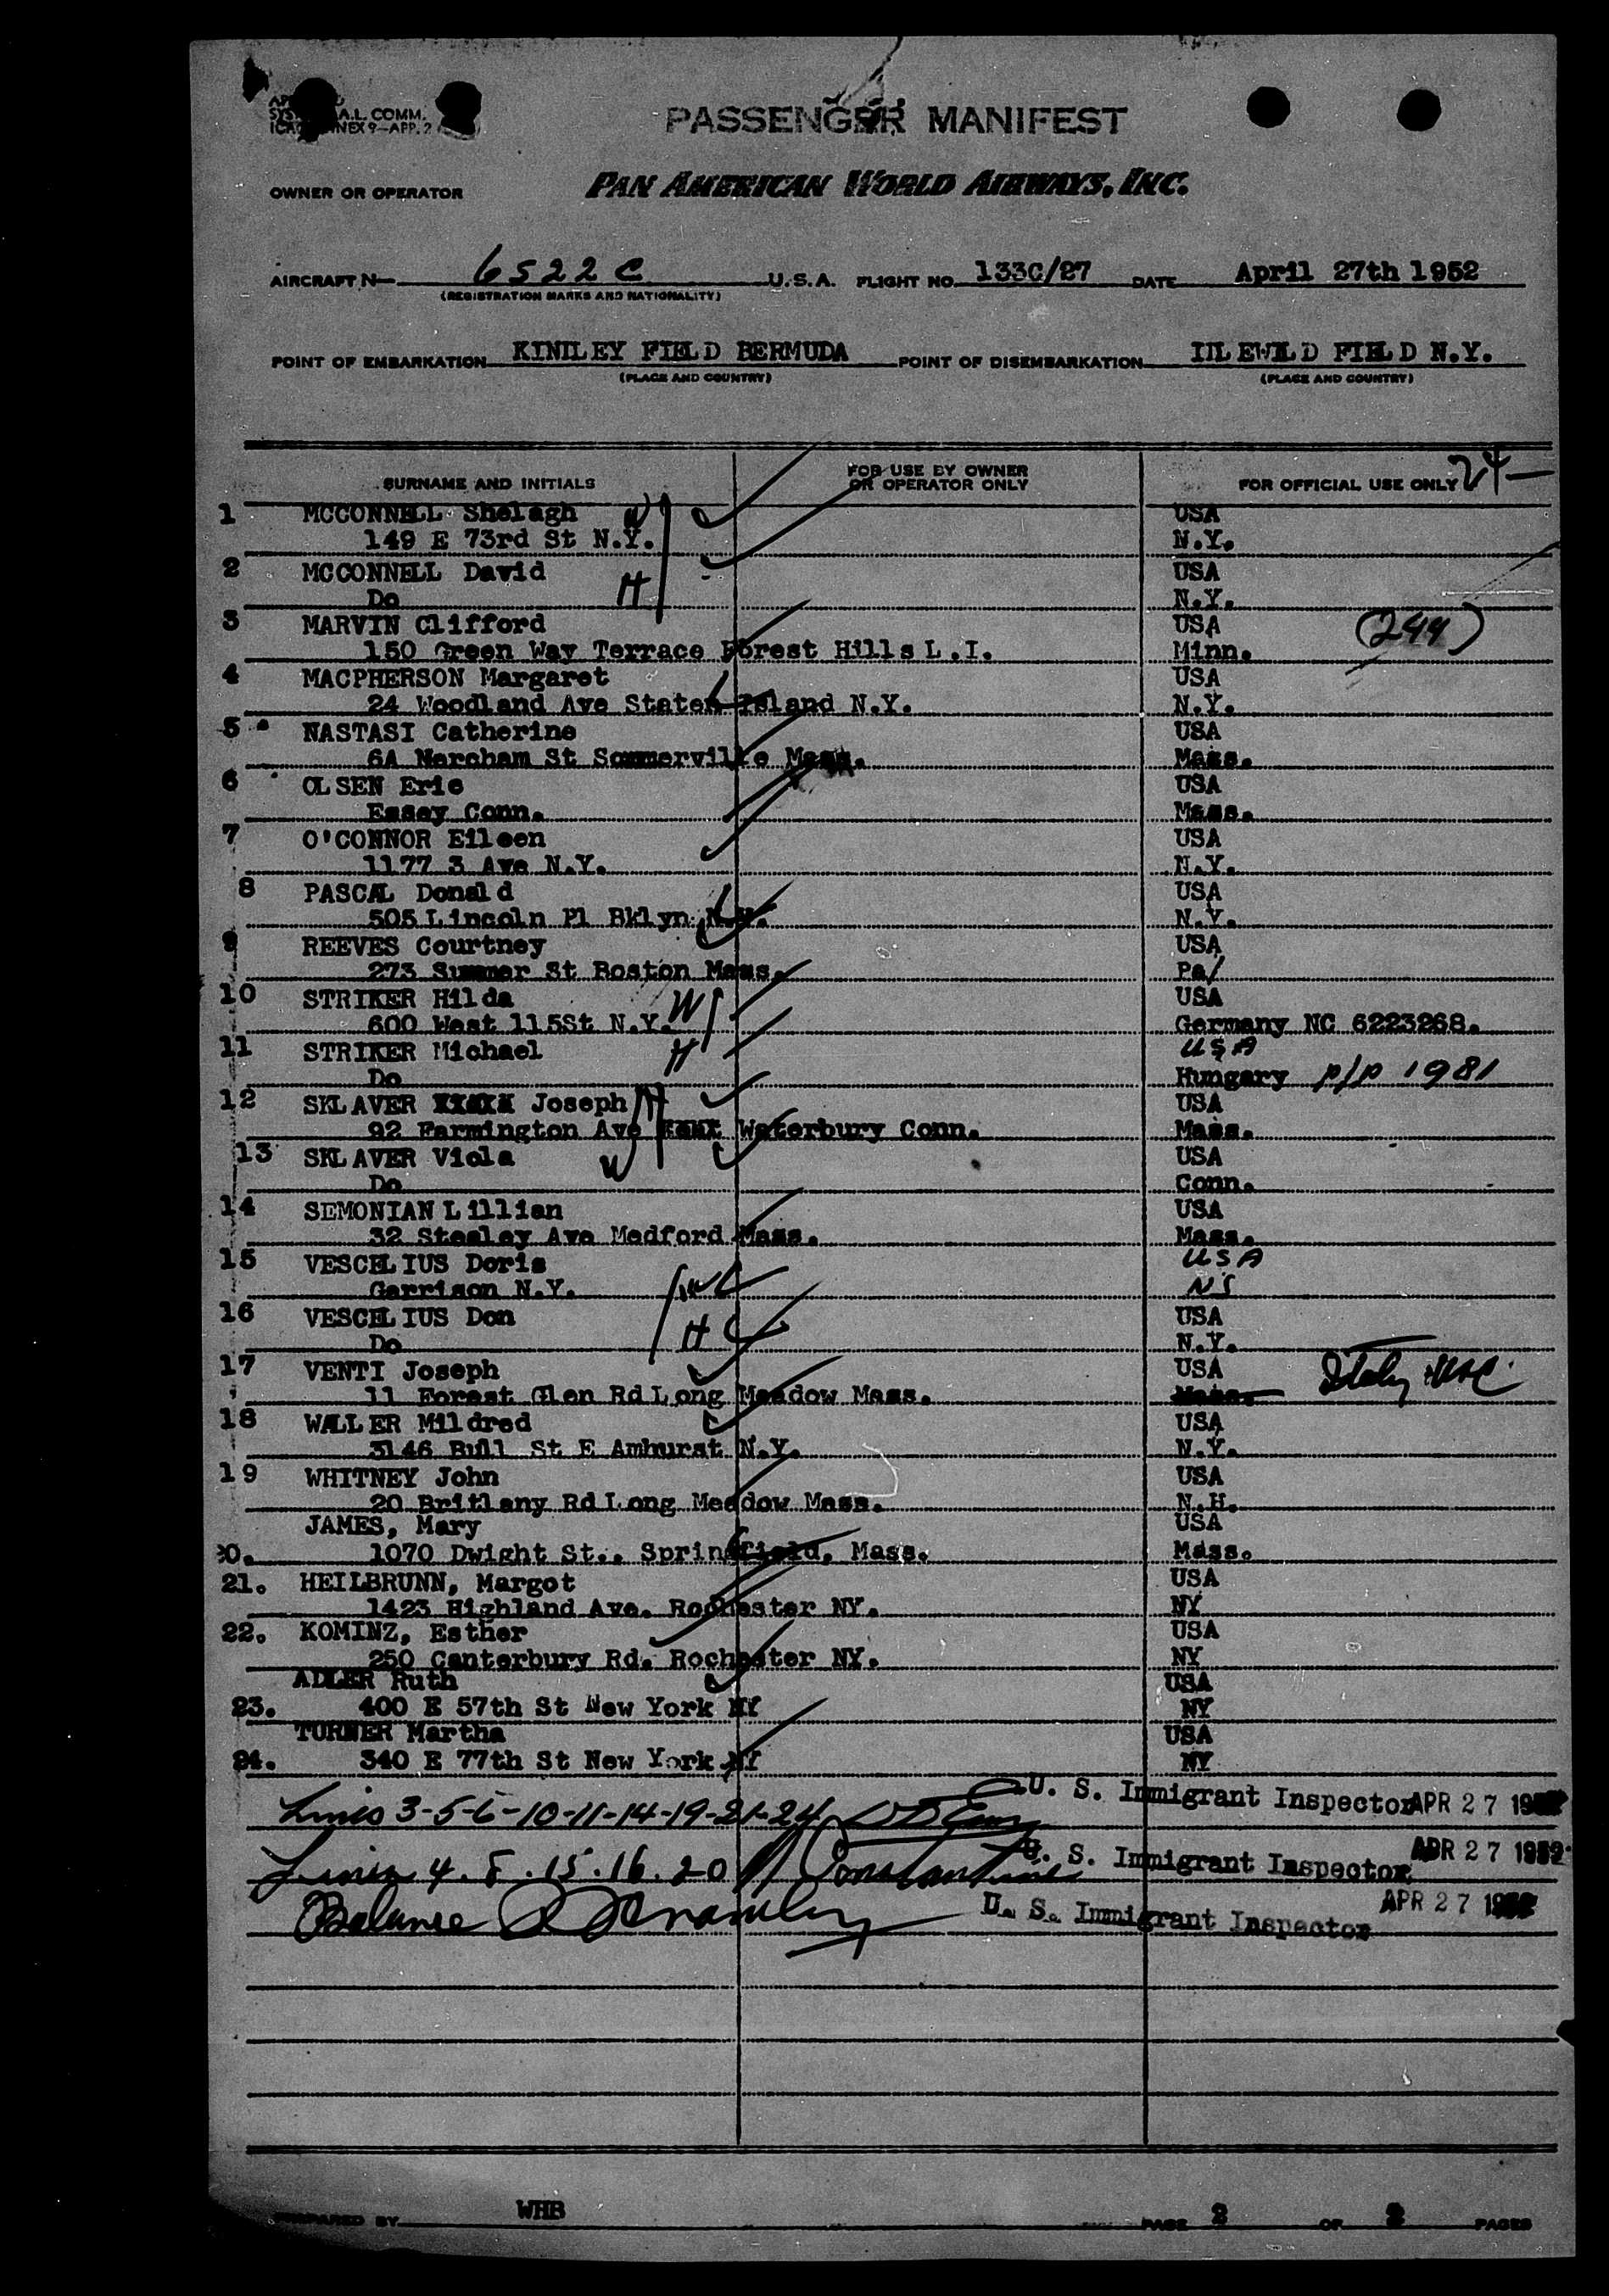 A.L. COMM.
ANNEX 9—APP. 2
PASSENGER MANIFEST
OWNER OR OPERATOR PAN AMERICAN WORLD AIRWAYS, INC.
AIRCRAFT N— 6522C U.S.A. FLIGHT NO. 133C/27 DATE April 27th 1952
(REGISTRATION MARKS AND NATIONALITY)
POINT OF EMBARKATION KINDLEY FIELD BERMUDA POINT OF DISEMBARKATION IDLEWILD FIELD N.Y.
(PLACE AND COUNTRY) (PLACE AND COUNTRY)
SURNAME AND INITIALS FOR USE BY OWNER OR OPERATOR ONLY FOR OFFICIAL USE ONLY 24—
1 MCCONNELL Shelagh W USA
149 E 73rd St N.Y. N.Y.
2 MCCONNELL David USA
Do H N.Y.
3 MARVIN Clifford USA (244)
150 Green Way Terrace Forest Hills L.I. Minn.
4 MACPHERSON Margaret USA
24 Woodland Ave Staten Island N.Y. N.Y.
5 NASTASI Catherine USA
6A Marcham St Sommerville Mass. Mass.
6 OLSEN Eric USA
Essey Conn. Mass.
7 O'CONNOR Eileen USA
1177 3 Ave N.Y. N.Y.
8 PASCAL Donald USA
505 Lincoln Pl Bklyn N.Y. N.Y.
9 REEVES Courtney USA
273 Summer St Boston Mass. Pa/
10 STRIKER Hilda W USA
600 West 115St N.Y. Germany NC 6223268.
11 STRIKER Michael H USA
Do Hungary P/P 1981
12 SKLAVER XXXXX Joseph H USA
92 Farmington Ave Waterbury Conn. Mass.
13 SKLAVER Viola W USA
Do Conn.
14 SEMONIAN Lillian USA
32 Stealey Ave Medford Mass. Mass.
15 VESCELIUS Doris USA
Garrison N.Y. W
16 VESCELIUS Don USA
Do H N.Y.
17 VENTI Joseph USA Italy
11 Forest Glen Rd Long Meadow Mass. Mass.
18 WALLER Mildred USA
3146 Bull St E Amhurst N.Y. N.Y.
19 WHITNEY John USA
20 Britlany Rd Long Meadow Mass. N.H.
JAMES, Mary USA
20. 1070 Dwight St.. Springfield, Mass. Mass.
21. HEILBRUNN, Margot USA
1423 Highland Ave. Rochester NY. NY
22. KOMINZ, Esther USA
250 Canterbury Rd. Rochester NY. NY
ADLER Ruth USA
23. 400 E 57th St New York NY NY
TURNER Martha USA
24. 340 E 77th St New York NY NY
Lines 3-5-6-10-11-14-19-21-24 U. S. Immigrant Inspector APR 27 1952
Lines 4. 8. 15. 16. 20 U. S. Immigrant Inspector APR 27 1952
Balance U. S. Immigrant Inspector APR 27 1952
PREPARED BY WHB PAGE 2 OF 2 PAGES